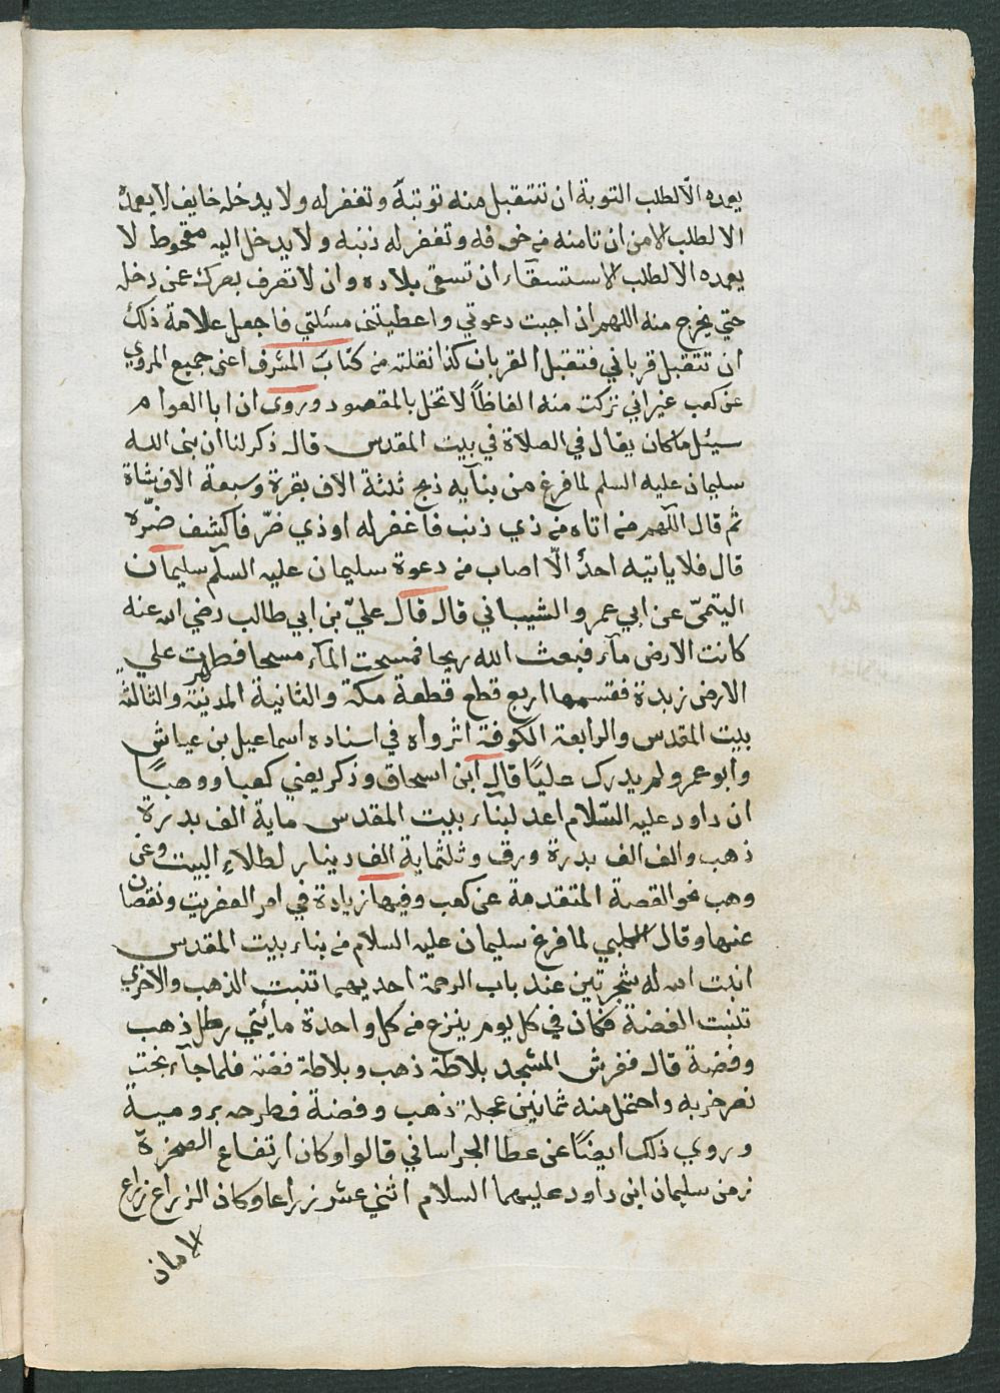 يعمده الّا لطلب التوبة ان تتقبل منه توبتهٌ وتغفر له ولا يدخله خايف لا يعمده
الا لطلب الامن ان تامنه من خوفه وتغفر له ذنبه ولا يدخل اليه مقحوط لا
يعمده الا لطلب الاستسقآء ان تسقى بلاده وان لا تصرف بصرك عمن دخله
حتي يخرج منه اللهم ان اجبت دعوتي واعطيتنى مسئلتي فاجعل علامة ذلك
ان تتقبل قرباني فتقبل القربان كذا نقلته من كتاب المشرف اعنى جميع المروي
عن كعب غير اني تركت منه الفاظاً لا تخل بالمقصود وروى ان ابا العوام
سيئل ما كان يقال في الصلاة في بيت المقدس قال ذكر لنا ان نبى الله
سليمان عليه السلم لما فرغ من بنآيه ذبح ثلثة الاف بقرة وسبعة الاف شاة
ثم قال اللّهم من اتاه من ذي ذنب فاغفر له او ذي ضرّ فاكشف ضرّه
قال فلا ياتيه احدٌ الّا اصاب من دعوة سليمان عليه السلم سليمان
اليتمىّ عن ابي عمرو الشيباني قال قال عليّ بن ابي طالب رضي الله عنه
كانت الارض مآء فبعث الله ريحا فمسحت المآء مسحا فظهرت علي
الارض زبدة فقسمها اربع قطع قطعة مكة والثانية المدينة والثالثة
بيت المقدس والرابعة الكوفة اثر واه في اسناده اسماعيل بن عياش
وابو عمرو لم يدرك عليًا قال ابن اسحاق وذكر يعني كعبا ووهبًا
ان داود عليه السّلام اعد لبنآء بيت المقدس ماية الف بدرة
ذهب والف الف بدرة ورق وثلثماية الف دينار لطلاءِ البيت وعن
وهب نحو القصة المتقدمة عن كعب وفيها زيادة في امر العفريت ونقصان
عنها وقال الكلبي لما فرغ سليمان عليه السلام من بناء بيت المقدس
انبت الله له شجرتين عند باب الرحمة احديهما تنبت الذهب والاخري
تنبت الفضة فكان في كل يوم ينزع من كل واحدة مائتي رطل ذهب
وفضة قال ففرش المسجد بلاطة ذهب وبلاطة فضة فلما جآء بخت
نصر خربه واحتمل منه ثمانين عجلة ذهب وفضة فطرحه برومية
وروي ذلك ايضًا عن عطا الخراساني قالوا وكان ارتفاع الصخرة
زمن سليمان ابن داود عليهما السلام اثني عشر ذراعا وكان الذراع ذراع
الامان